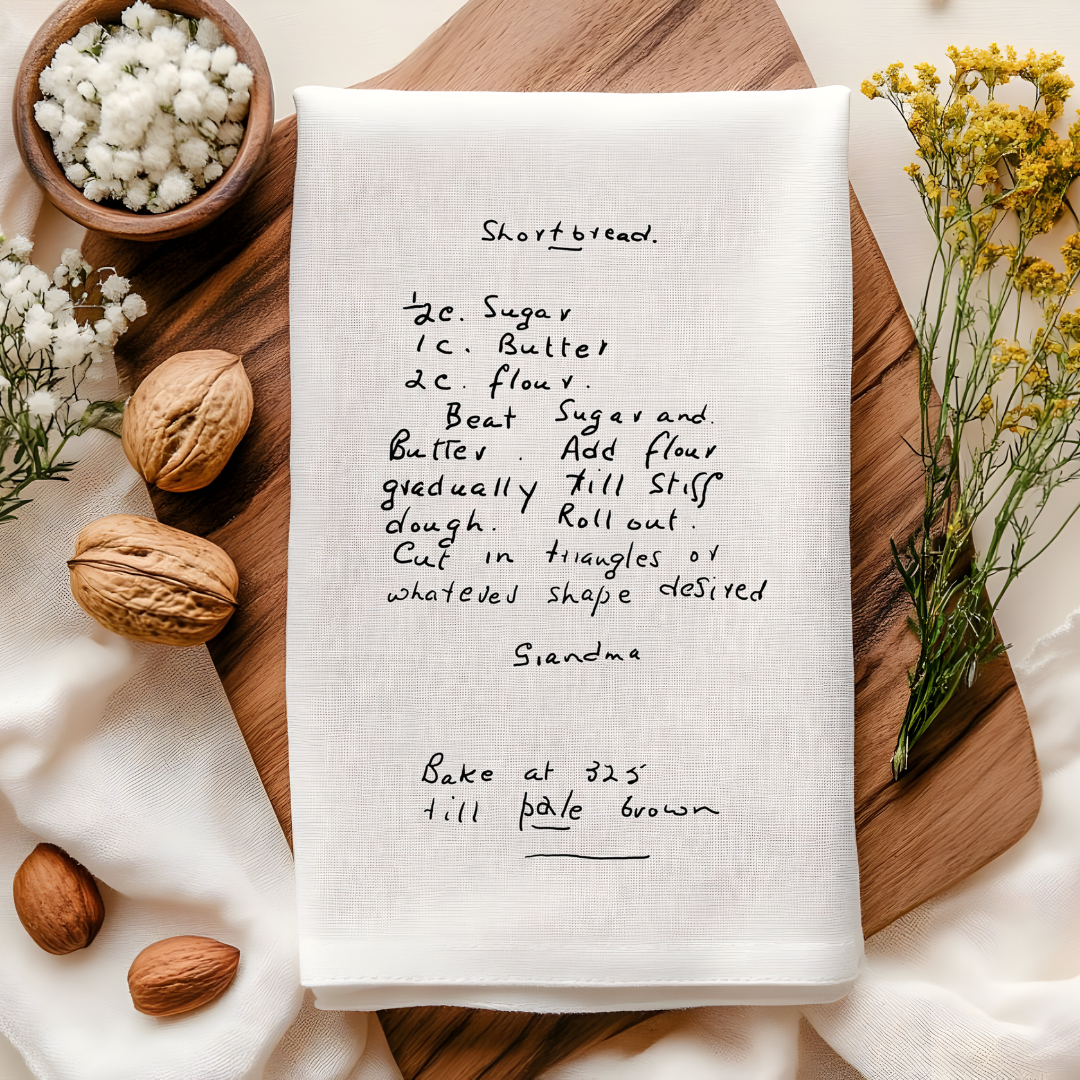 Shortbread.
½c. Sugar
1c. Butter
2c. flour.
Beat Sugar and.
Butter. Add flour
gradually till Stiff
dough. Roll out.
Cut in triangles or
whatever shape desired
Grandma
Bake at 325
till pale brown